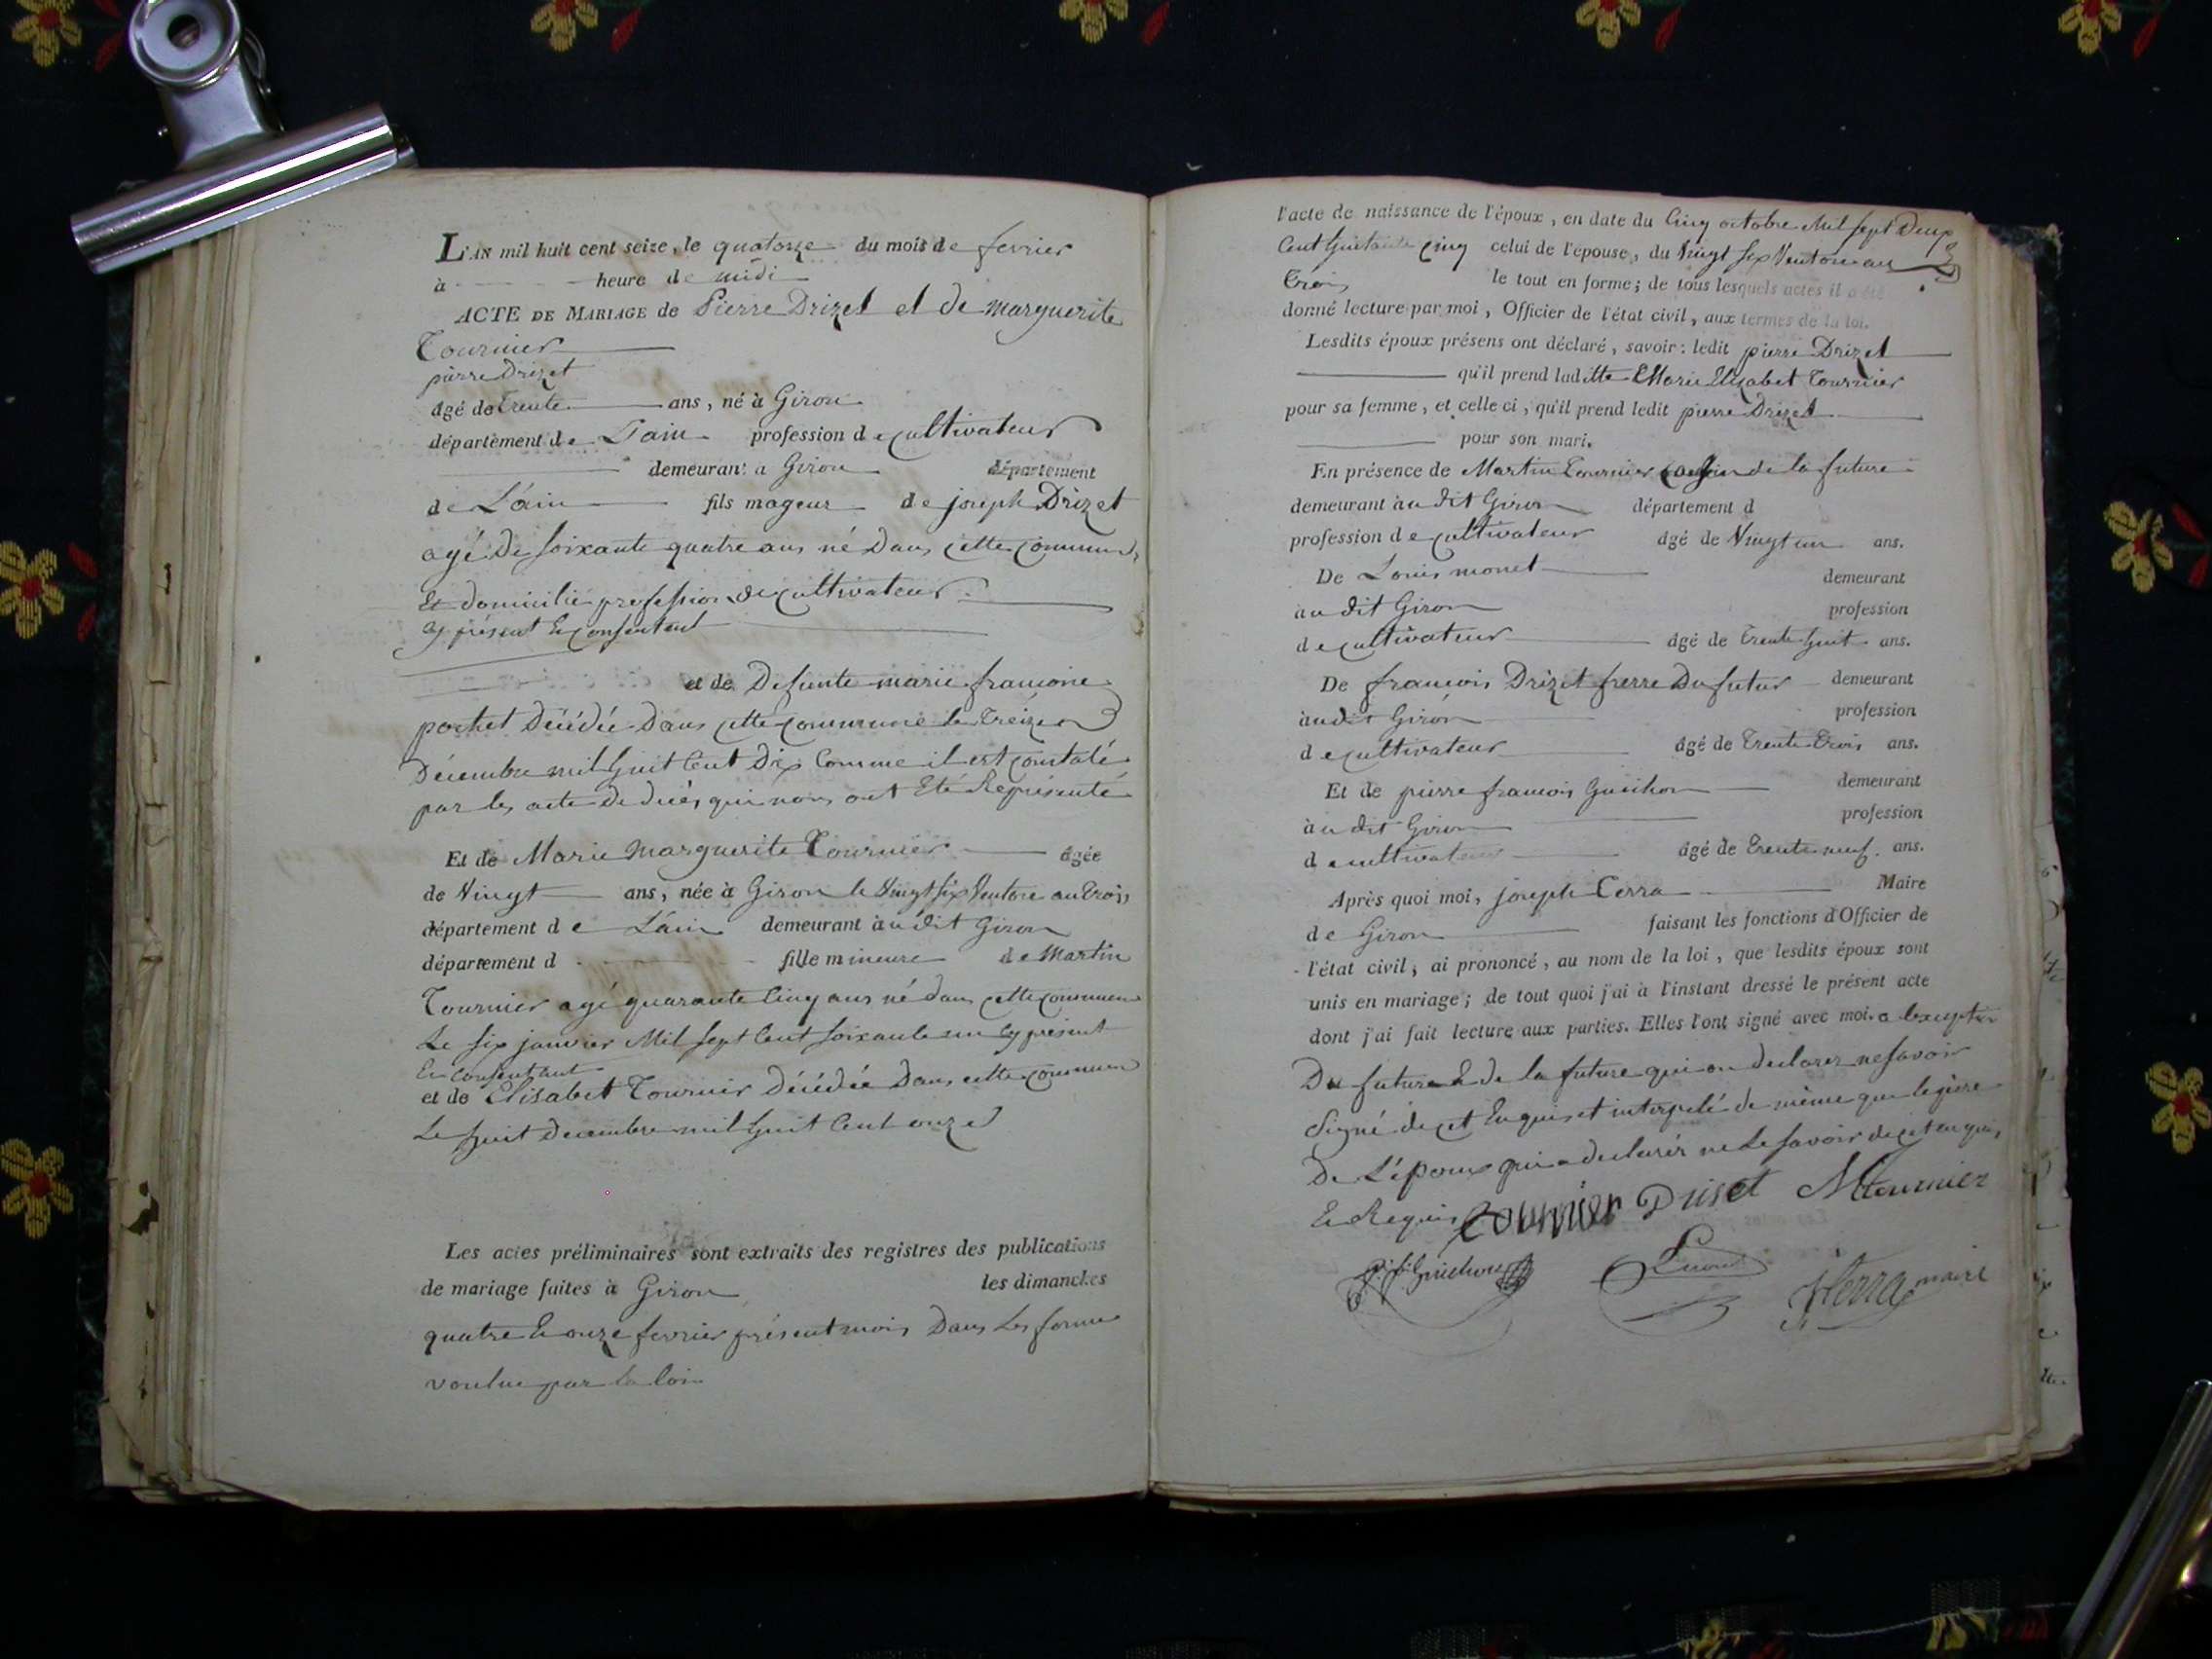 L'AN mil huit cent seize, le quatorze du mois de fevrier
à heure de midi
ACTE DE MARIAGE de Pierre Drizet et de marguerite
Tournier
pierre Drizet
âgé de trente ans, né à Giron
département de L'ain profession de cultivateur
demeurant a Giron département
de L'ain fils mageur de joseph Drizet
agé de soixante quatre ans né dans cette commune
Et domicilié profession de cultivateur
cy présent Et consentent
et de Defunte marie francoise
pochet Décédée dans cette commune le treize
Décembre mil huit Cent Dix Comme il est constaté
par les acte de décés qui nous ont Eté Représenté
Et de Marie marguerite Tournier âgée
de Vingt ans, née à Giron le Vingt six Ventose an trois
département de L'ain demeurant à u dit Giron
département d fille mineure de Martin
Tournier agé quarante Cinq ans né dans cette commune
Le six janvier Mil sept Cent soixante un cy présent
Et Consentant
et de Elisabet Tournier Décédée Dans cette commune
Le huit decembre mil huit Cent onze
Les actes préliminaires sont extraits des registres des publications
de mariage faites à Giron les dimanches
quatre Et onze fevrier présent mois Dans Les forme
voulue par la loi
l'acte de naissance de l'époux, en date du Cinq octobre Mil sept
Cent huitante cinq celui de l'épouse, du Vingt six Ventose an
trois le tout en forme; de tous lesquels actes il a été
donné lecture par moi, Officier de l'état civil, aux termes de la loi.
Lesdits époux présens ont déclaré, savoir: ledit pierre Drizet
qu'il prend laditte Marie Elizabet Tournier
pour sa femme, et celle ci, qu'il prend ledit pierre Drizet
pour son mari.
En présence de Martin Tournier Cousin de la future
demeurant à u dit Giron département d
profession de cultivateur âgé de Vingt un ans.
De Louis monet demeurant
à u dit Giron profession
de cultivateur âgé de trente huit ans.
De francois Drizet frerre Du futur demeurant
à u dit Giron profession
de cultivateur âgé de trente trois ans.
Et de pierre francois Guichon demeurant
à u dit Giron profession
de cultivateur âgé de trente neuf ans.
Après quoi moi, joseph Cerra Maire
de Giron faisant les fonctions d'Officier de
l'état civil, ai prononcé, au nom de la loi, que lesdits époux sont
unis en mariage; de tout quoi j'ai à l'instant dressé le présent acte
dont j'ai fait lecture aux parties. Elles l'ont signé avec moi. a l'exception
Du future Et de la future qui on declarer ne savoir
Signé de cet Enquis et interpelé de même que le père
De L'époux qui a declarér ne Le savoir de cet enquis
Et Requis tournier Driset M tournier
p. f. Guichon maire